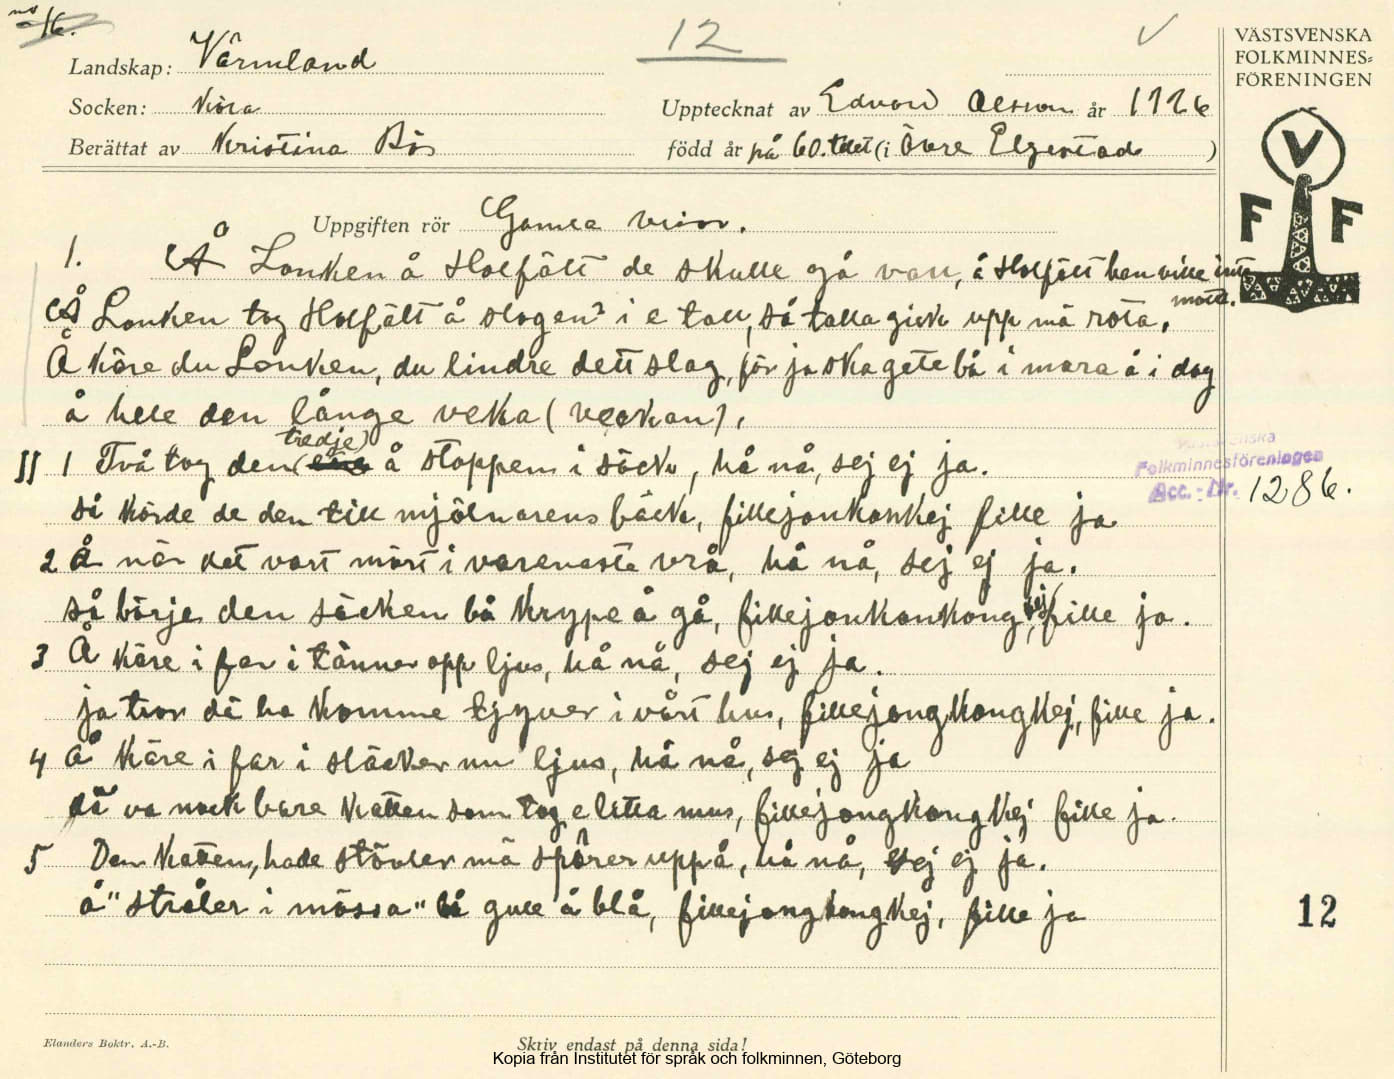 no 16.
12
VÄSTSVENSKA
FOLKMINNES-
FÖRENINGEN
Landskap: Värmland
Socken: Köla
Upptecknat av Edvard Olsson år 1926
Berättat av Kristina Bös
född år på 60.talet (i Övre Elgestad)
V F F
Uppgiften rör Gamla visor.
1. Å Lonken å Holfält de skulle gå vall, å Holfält han ville inte
mota.
Å Lonken tog Holfält å slogen i e tall, så talla gick upp mä rota.
Å käre du Lonken, du lindre dett slag, för ja ska gete bå i mara å i dag
å hele den långe veka (veckan).
II 1 Två tog den (tredje) å stoppen i säck, hå nå, sej ej ja.
så körde de den till mjölnarens bäck, fillejonkonkej fille ja
2 Å når det vart mört i varenaste vrå, hå nå, sej ej ja.
så börje den säcken bå krype å gå, fillejonkonkong kej fille ja.
3 Å käre i far i tänner opp ljus, hå nå, sej ej ja.
ja tror dä ha komme tjyver i vårt hus, fillejongkongkej, fille ja.
4 Å käre i far i släcker nu ljus, hå nå, sej ej ja
dä va nock bare katten som tog e lita mus, fillejongkongkej fille ja.
5 Den katten, hade stövler mä spörer uppå, hå nå, sej ej ja.
å "stråler i mössa" bå gull å blå, fillejongkongkej, fille ja
Västsvenska
Folkminnesföreningen
Acc.-Nr. 1286.
12
Elanders Boktr. A.-B.
Skriv endast på denna sida!
Kopia från Institutet för språk och folkminnen, Göteborg